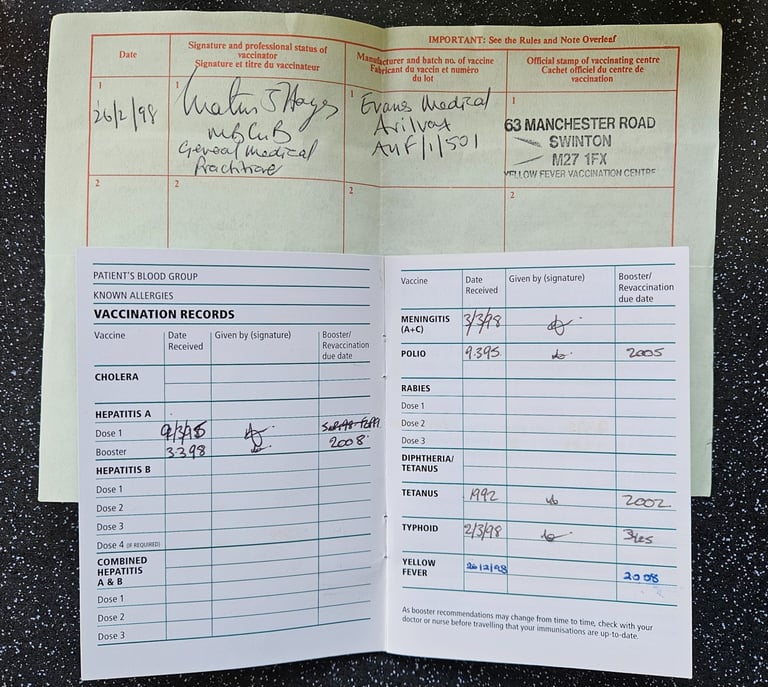 IMPORTANT: See the Rules and Note Overleaf
Date
Signature and professional status of
vaccinator
Signature et titre du vaccinateur
Manufacturer and batch no. of vaccine
Fabricant du vaccin et numéro
du lot
Official stamp of vaccinating centre
Cachet officiel du centre de
vaccination
1
26/2/98
1
Hayes
MBChB
General Medical
Practitioner
1
Evans Medical
Arilvax
1
63 MANCHESTER ROAD
SWINTON
M27 1FX
YELLOW FEVER VACCINATION CENTRE
2
2
2
2
PATIENT'S BLOOD GROUP
KNOWN ALLERGIES
VACCINATION RECORDS
Vaccine
Date
Received
Given by (signature)
Booster/
Revaccination
due date
CHOLERA
HEPATITIS A
Dose 1 9/3/95
Booster 3398 2008
HEPATITIS B
Dose 1
Dose 2
Dose 3
Dose 4 (IF REQUIRED)
COMBINED
HEPATITIS
A & B
Dose 1
Dose 2
Dose 3
Vaccine
Date
Received
Given by (signature)
Booster/
Revaccination
due date
MENINGITIS
(A+C)
3/3/98
POLIO 9.395 2005
RABIES
Dose 1
Dose 2
Dose 3
DIPHTHERIA/
TETANUS
TETANUS 1992 2002
TYPHOID 2/3/98
YELLOW
FEVER
26/2/98
2008
As booster recommendations may change from time to time, check with your
doctor or nurse before travelling that your immunisations are up-to-date.